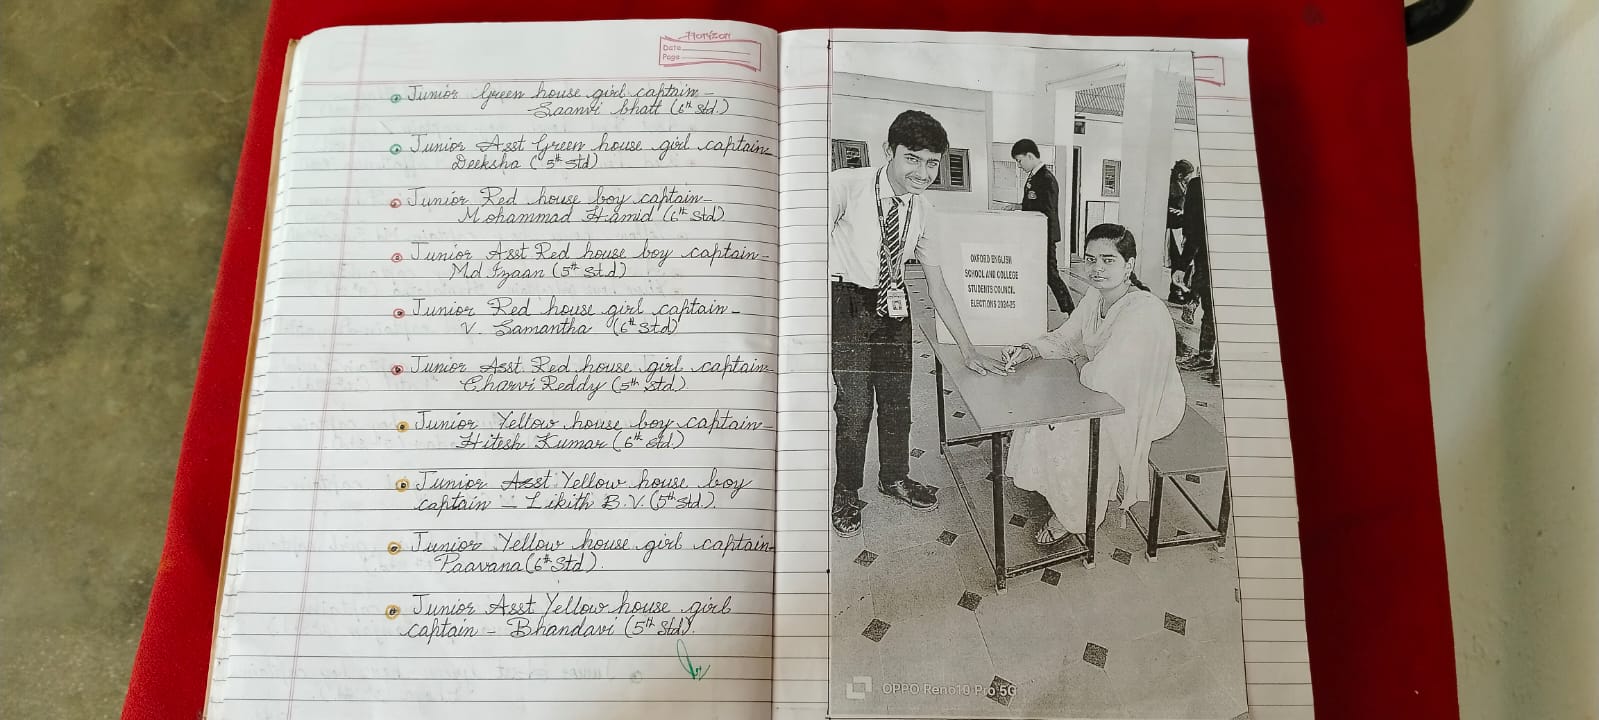 Horizon
Date
Page
Junior Green house girl captain-
Saanvi bhatt (6th Std.)
Junior Asst Green house girl captain-
Deeksha (5th Std)
Junior Red house boy captain-
Mohammad Hamid (6th Std)
Junior Asst Red house boy captain-
Md Izaan (5th Std)
Junior Red house girl captain-
V. Samantha (6th Std)
Junior Asst. Red house girl captain-
Charvi Reddy (5th Std)
Junior Yellow house boy captain-
Hitesh Kumar (6th Std)
Junior Asst Yellow house boy
captain - Likith B.V. (5th Std.).
Junior Yellow house girl captain-
Paavana (6th Std).
Junior Asst Yellow house girl
captain - Bhandavi (5th Std).
OXFORD ENGLISH
SCHOOL AND COLLEGE
STUDENTS COUNCIL
ELECTIONS 2024-25
OPPO Reno10 Pro 5G